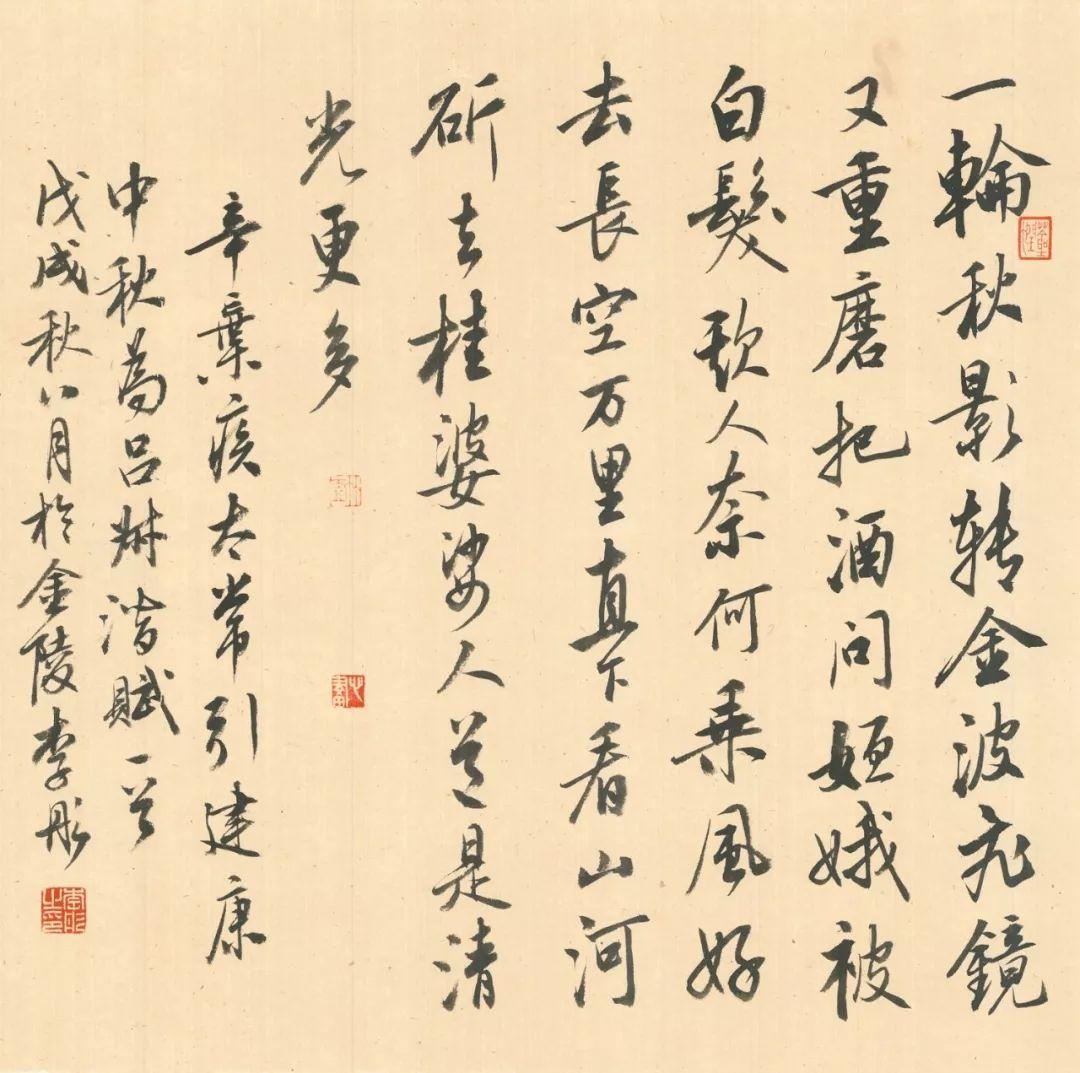 一輪秋影转金波飛鏡
又重磨把酒问姮娥被
白髮欺人奈何乘風好
去長空万里直下看山河
斫去桂婆娑人道是清
光更多
辛棄疾太常引建康
中秋為呂叔潛賦一首
戊戌秋八月於金陵李彤
李彤之印